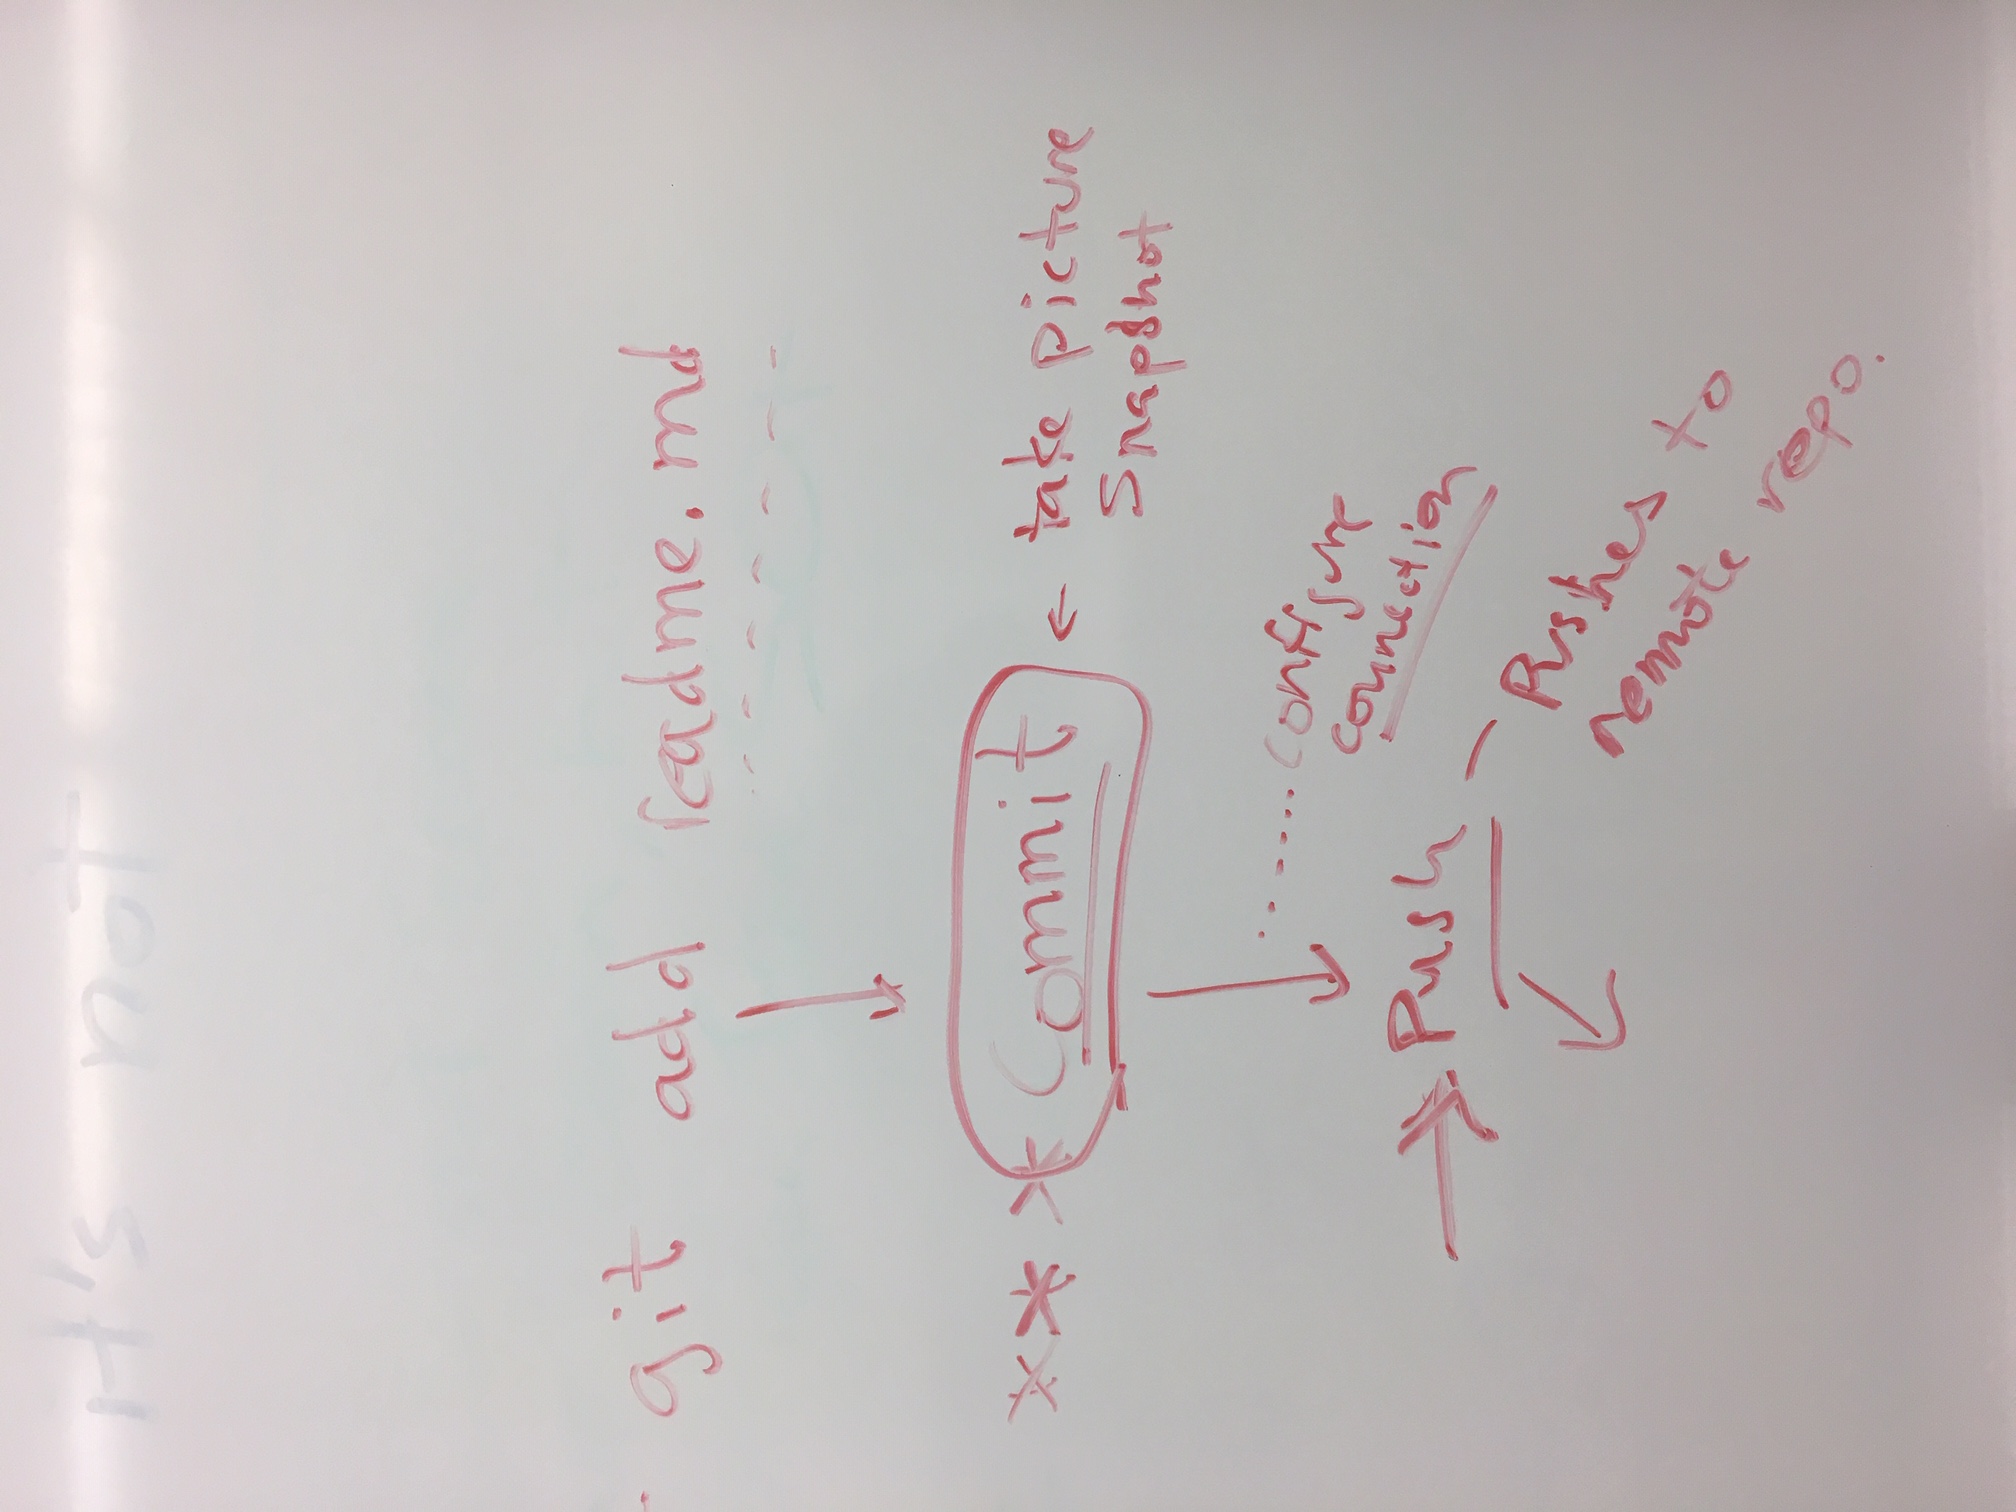 it's not
- git add readme.md
*** Commit ← take picture
Snapshot
configure
connection
→ Push
Pushes to
remote repo.